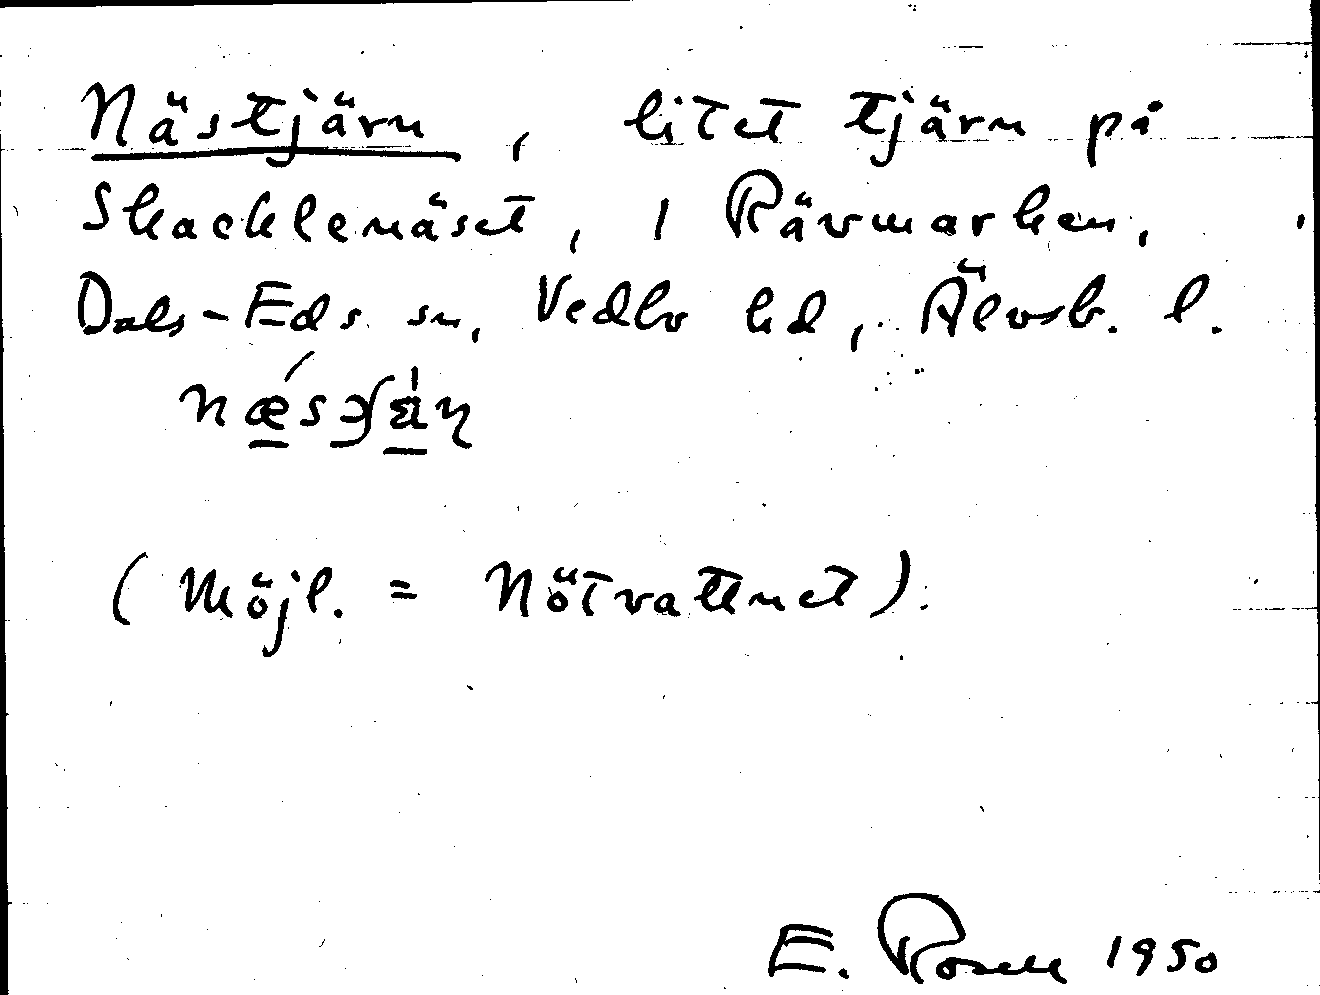 Nästjärn, litet tjärn på
Skacklenäset, i Rävmarken,
Dals-Eds sn, Vedbo hd, Älvsb. l.
(Möjl. = Nötvattnet).
E. Rosell 1950